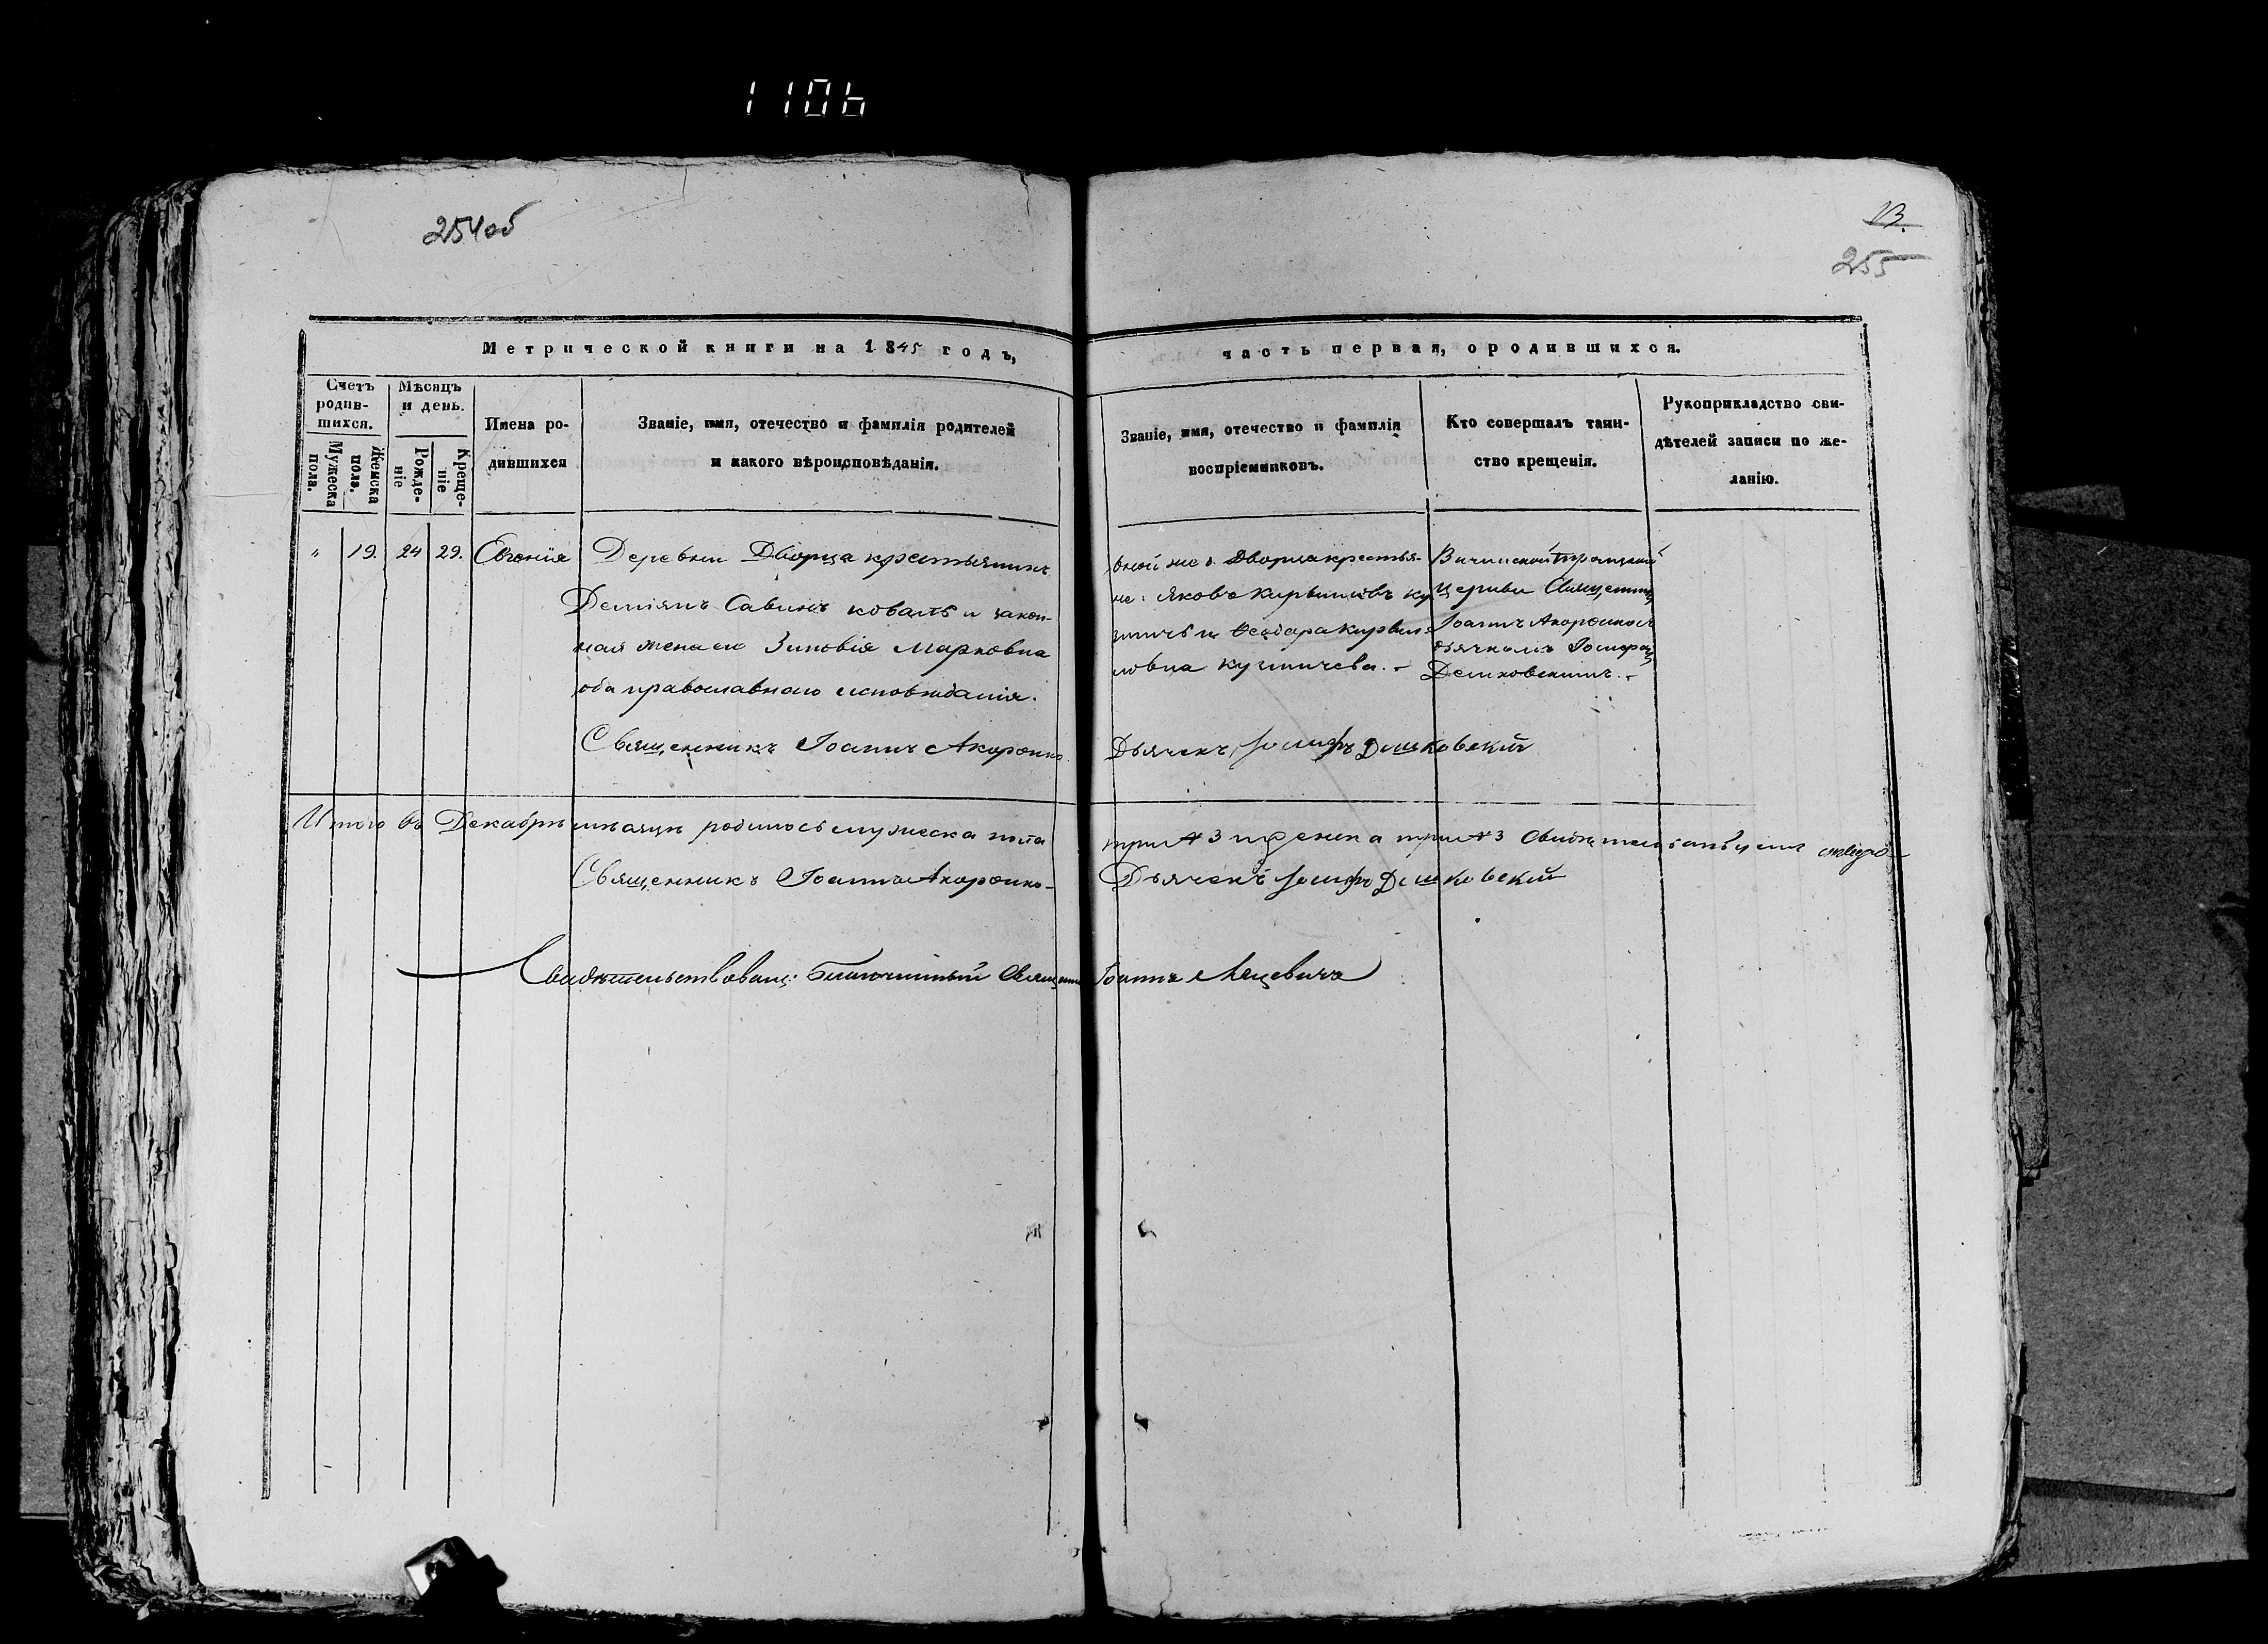 1106
254об
13.
255
Метрической книги на 1845 годъ,
часть первая, о родившихся.
Счетъ родив-
шихся.
Мужеска пола.
Женска пола.
Мѣсяцъ
и день.
Рожде-
ніе
Креще-
ніе
Имена ро-
дившихся
Званіе, имя, отечество и фамилія родителей
и какого вѣроисповѣданія.
Званіе, имя, отечество и фамилія
воспріемниковъ.
Кто совершалъ таин-
ство крещенія.
Рукоприкладство сви-
дѣтелей записи по же-
ланію.
" 19. 24 29. Евгенія
Деревни Дворца крестьянинъ
Деміянъ Савинъ коваль и закон-
ная жена его Зиновія Марковна
оба православнаго исповѣданія.
Священникъ Іоаннъ Акоронко
оной же д. Дворца крестья-
не: Яковъ
и Ѳеодора
ловна кузмичева.
Вичинской Троицкой
Церкви Священникъ
Іоаннъ Акоронко съ
дьячкомъ Іосифомъ
Дешковскимъ.
Дьячекъ Іосифъ Дешковскій
Итого въ Декабрѣ мѣсяцѣ родилось мужеска пола
три № 3 и женска три № 3
Священникъ Іоаннъ Акоронко
Дьячекъ Іосифъ Дешковскій
Свидѣтельствовалъ: Благочинный Священникъ Іоаннъ Лацевичъ